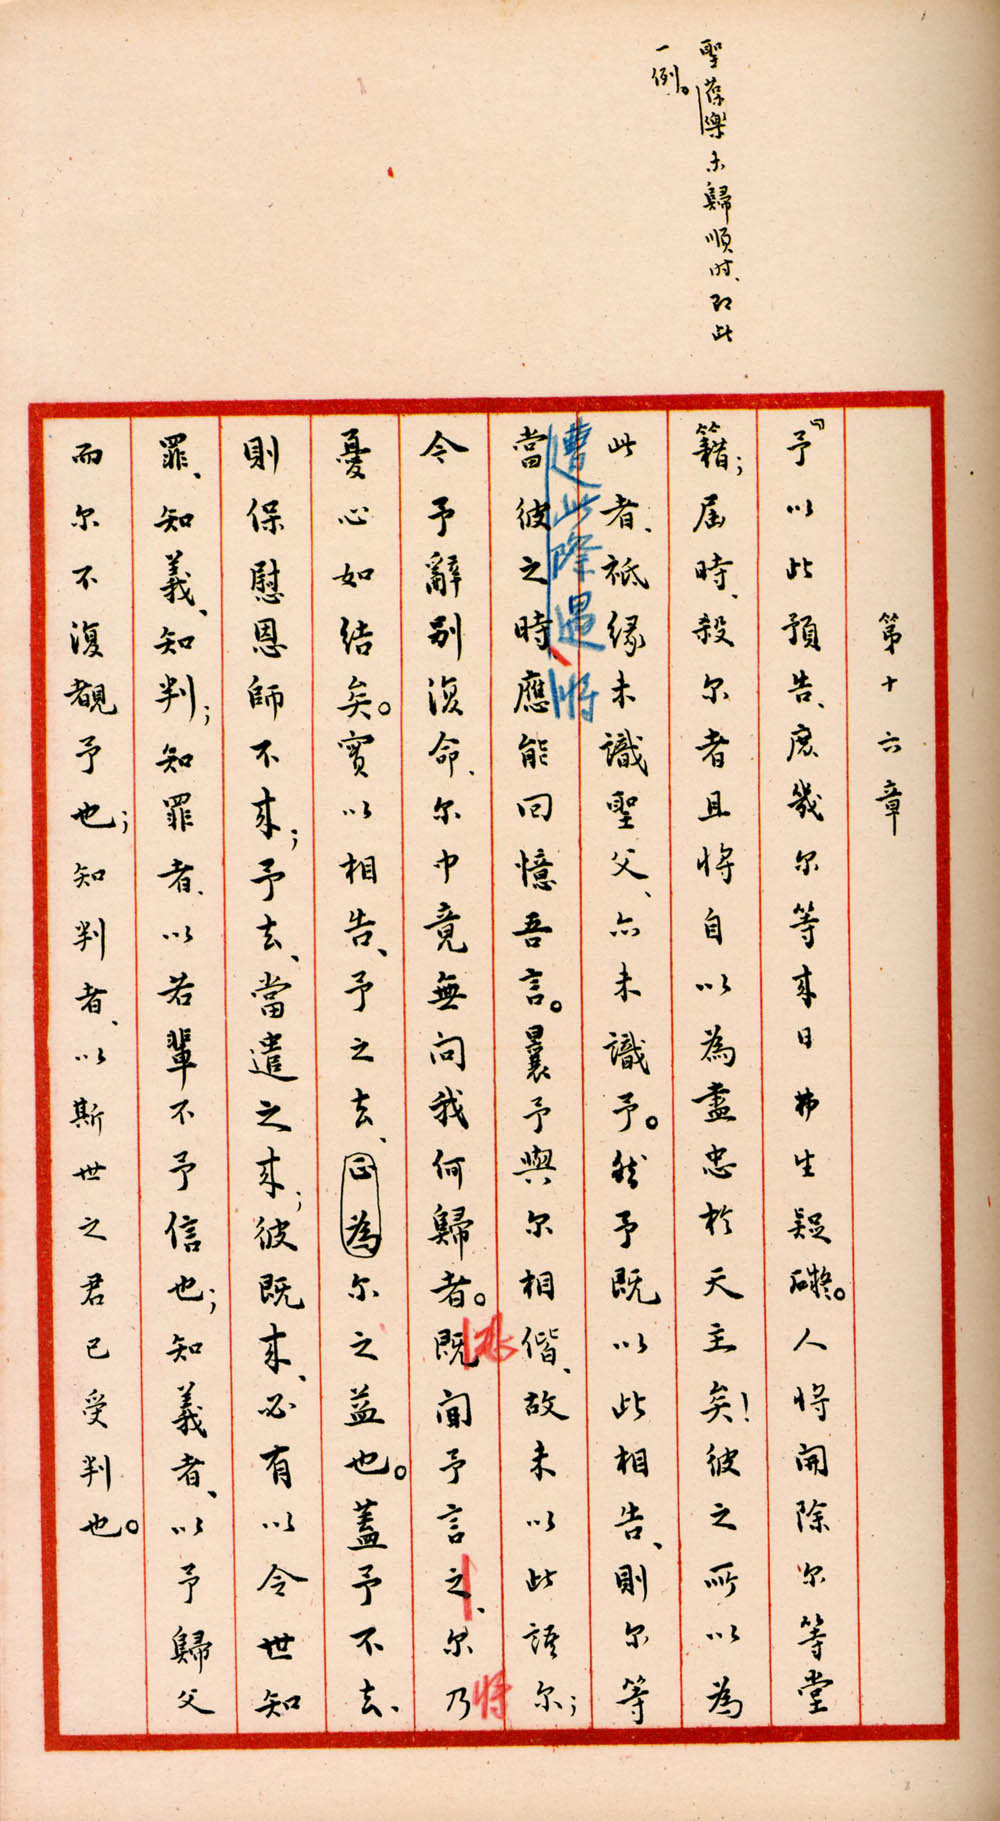 聖葆樂未歸順时、即此
一例。
第十六章
『予以此預告、庶幾尔等來日弗生疑礙。人将開除尔等堂
籍；屆時、殺尔者且将自以為盡忠於天主矣！彼之所以為
此者、祇缘未識聖父、亦未識予。然予既以此相告、則尔等
遭此際遇将
當彼之時應能回憶吾言。曩予與尔相偕、故未以此語尔；
令予辭别復命、尔中竟無问我何歸者。既闻予言之、尔乃
将
憂心如结矣。實以相告、予之去、正為尔之益也。蓋予不去、
則保慰恩師不來；予去、當遣之來；彼既來、必有以令世知
罪、知義、知判；知罪者、以若輩不予信也；知義者、以予歸父
而尔不復覩予也；知判者、以斯世之君已受判也。